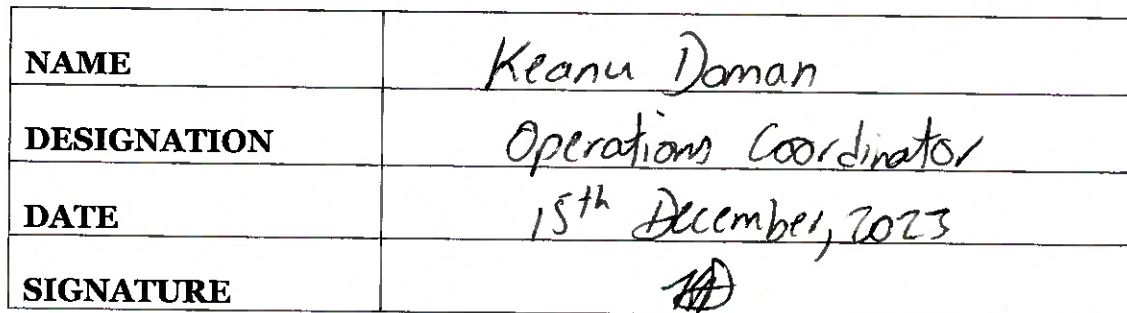 NAME Keanu Doman
DESIGNATION Operations Coordinator
DATE 15th December, 2023
SIGNATURE